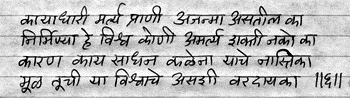 कायाधारी मर्त्य प्राणी अजन्मा असतील का
निर्मिण्या हे विश्व कोणी अमर्त्य शक्ती नको का
कारण काय साधन कळेना याचे नास्तिका
मूळ तूची या विश्वाचे असशी वरदायका ॥६॥